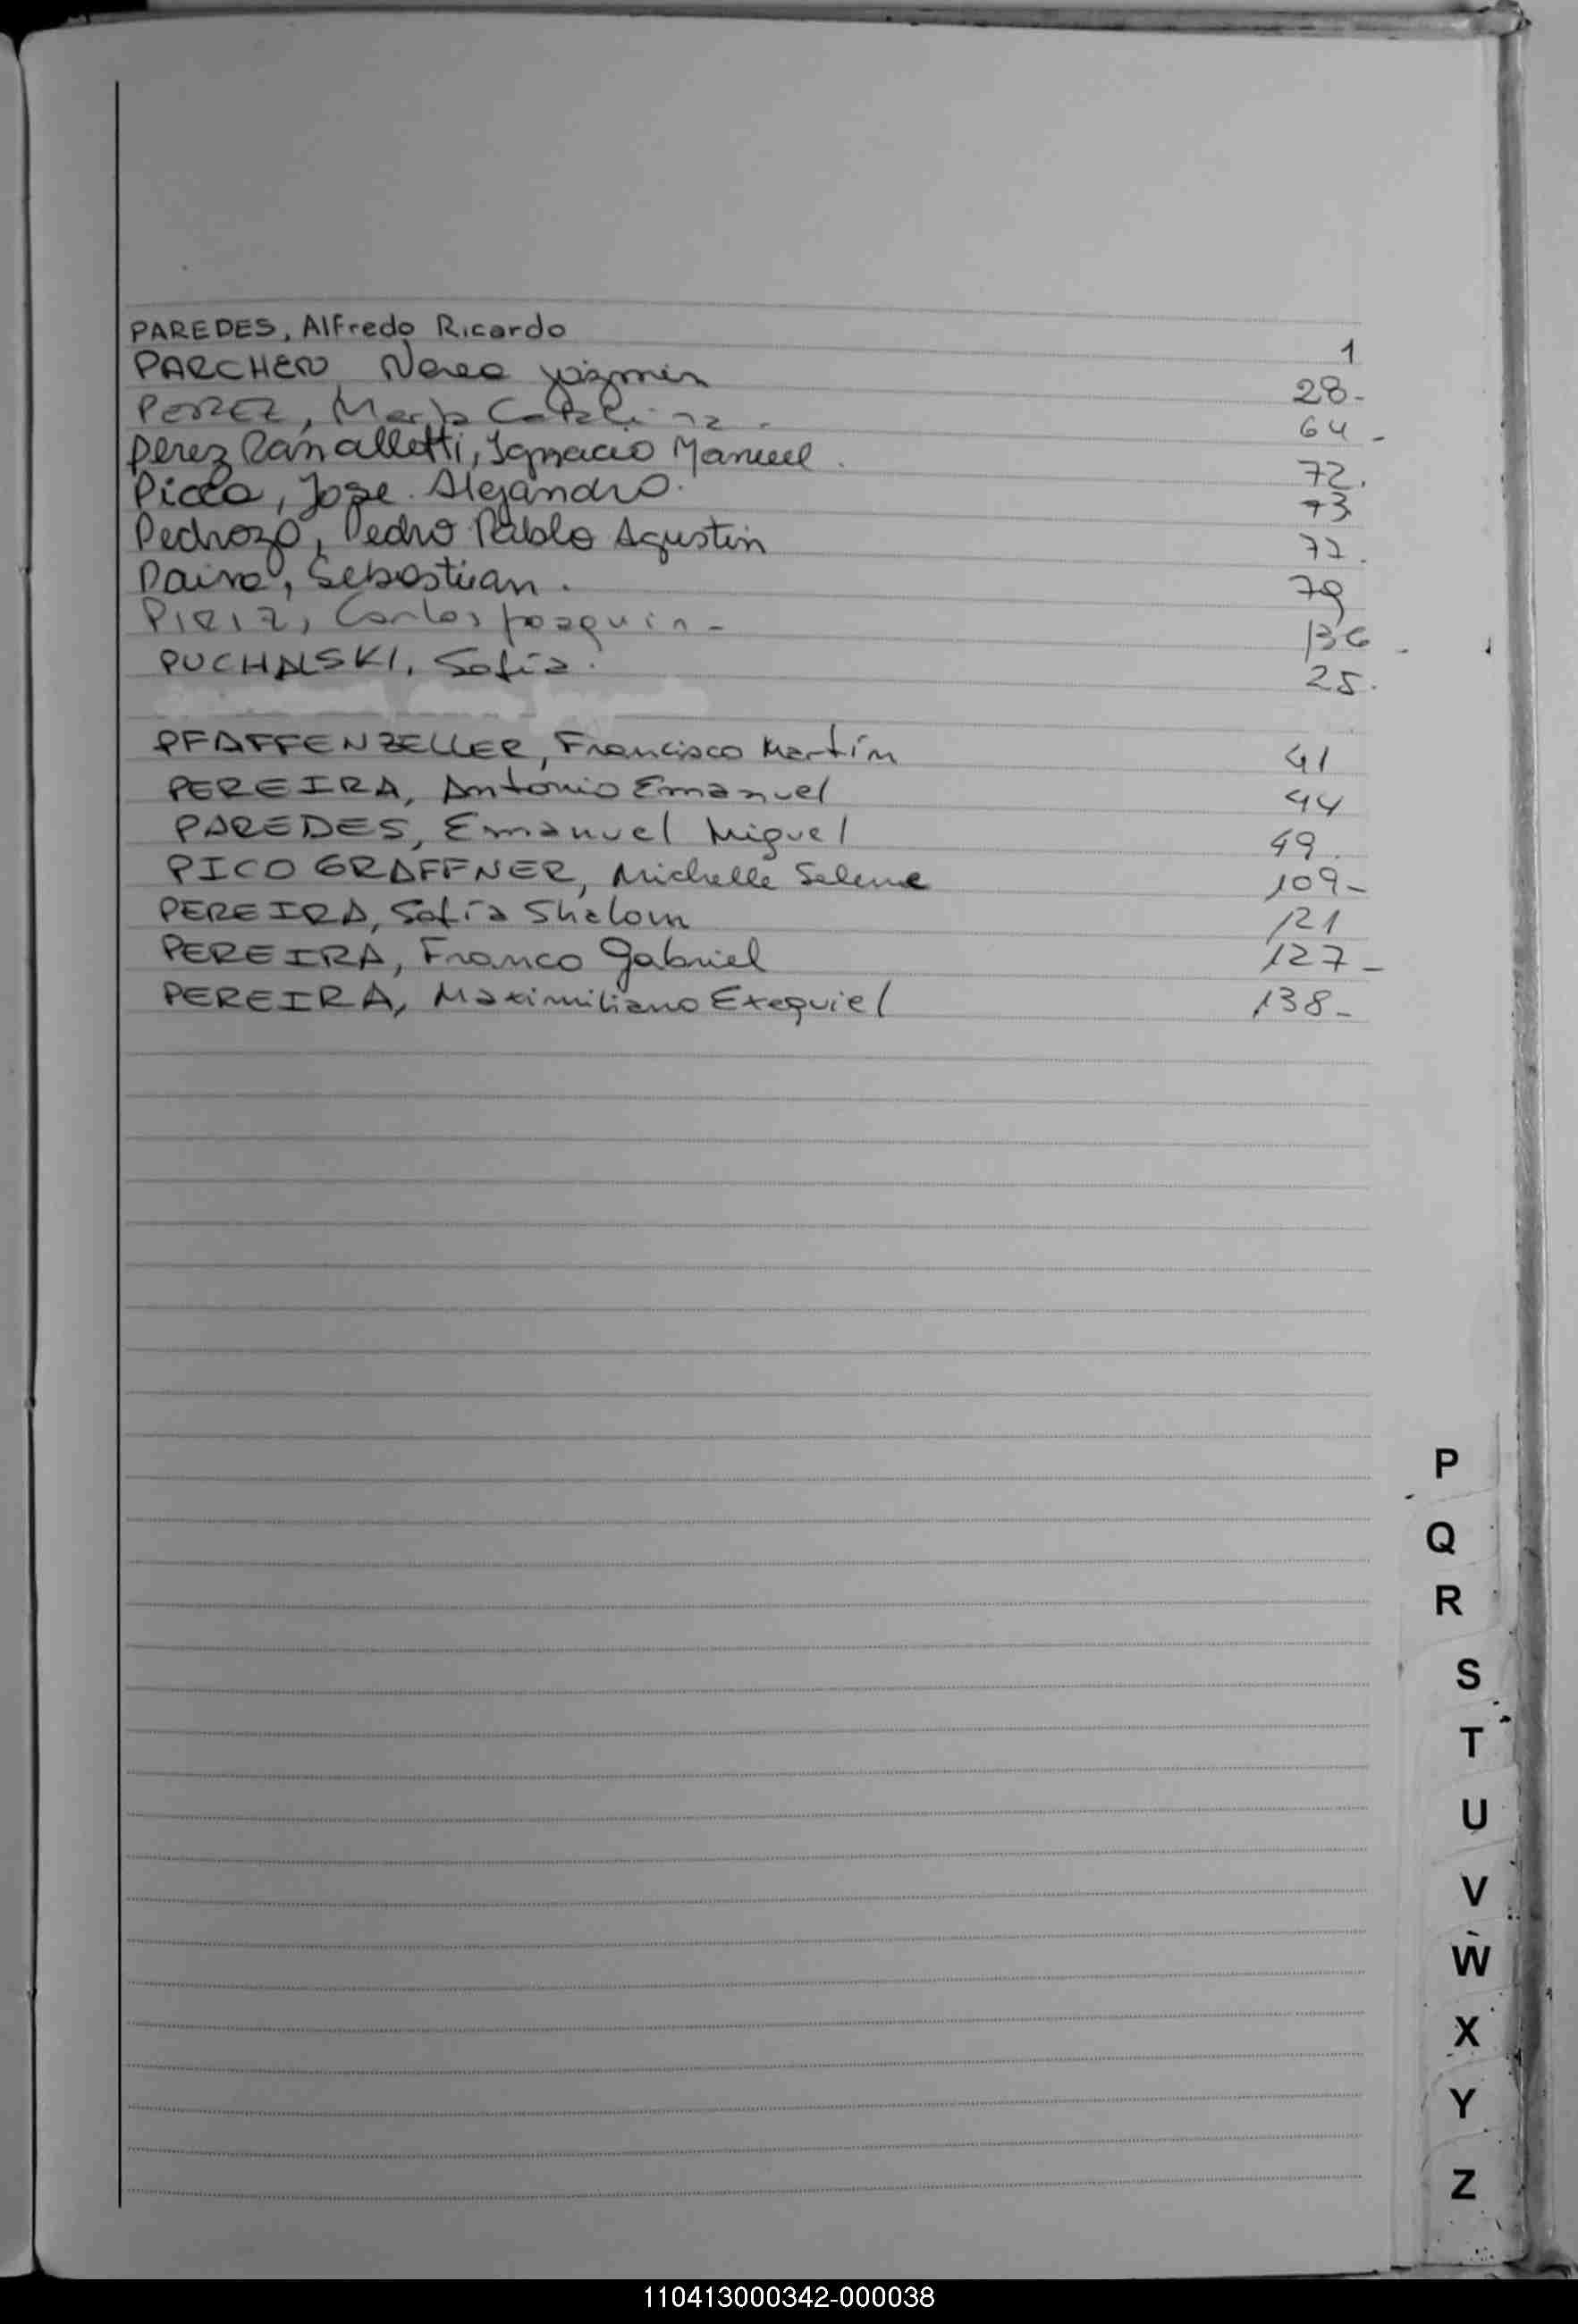 PAREDES, Alfredo Ricardo 1
PARCHEN Nerea Jazmin 28-
PEREZ, Marta Catalina. 64-
Perez Ranalletti, Ignacio Manuel. 72.
Picco, Jose. Alejandro. 73
Pedrozo, Pedro Pablo Agustin 77.
Paiva, Sebastian. 79
PIRIZ, Carlos Joaquin- 136-
PUCHALSKI, Sofía. 25.
PFAFFENZELLER, Francisco Martín 41
PEREIRA, Antonio Emanuel 44
PAREDES, Emanuel Miguel 49.
PICO GRAFFNER, Michelle Selene 109-
PEREIRA, Sofía Shalom 121
PEREIRA, Franco Gabriel 127-
PEREIRA, Maximiliano Exequiel 138-
P
Q
R
S
T
U
V
W
X
Y
Z
110413000342-000038